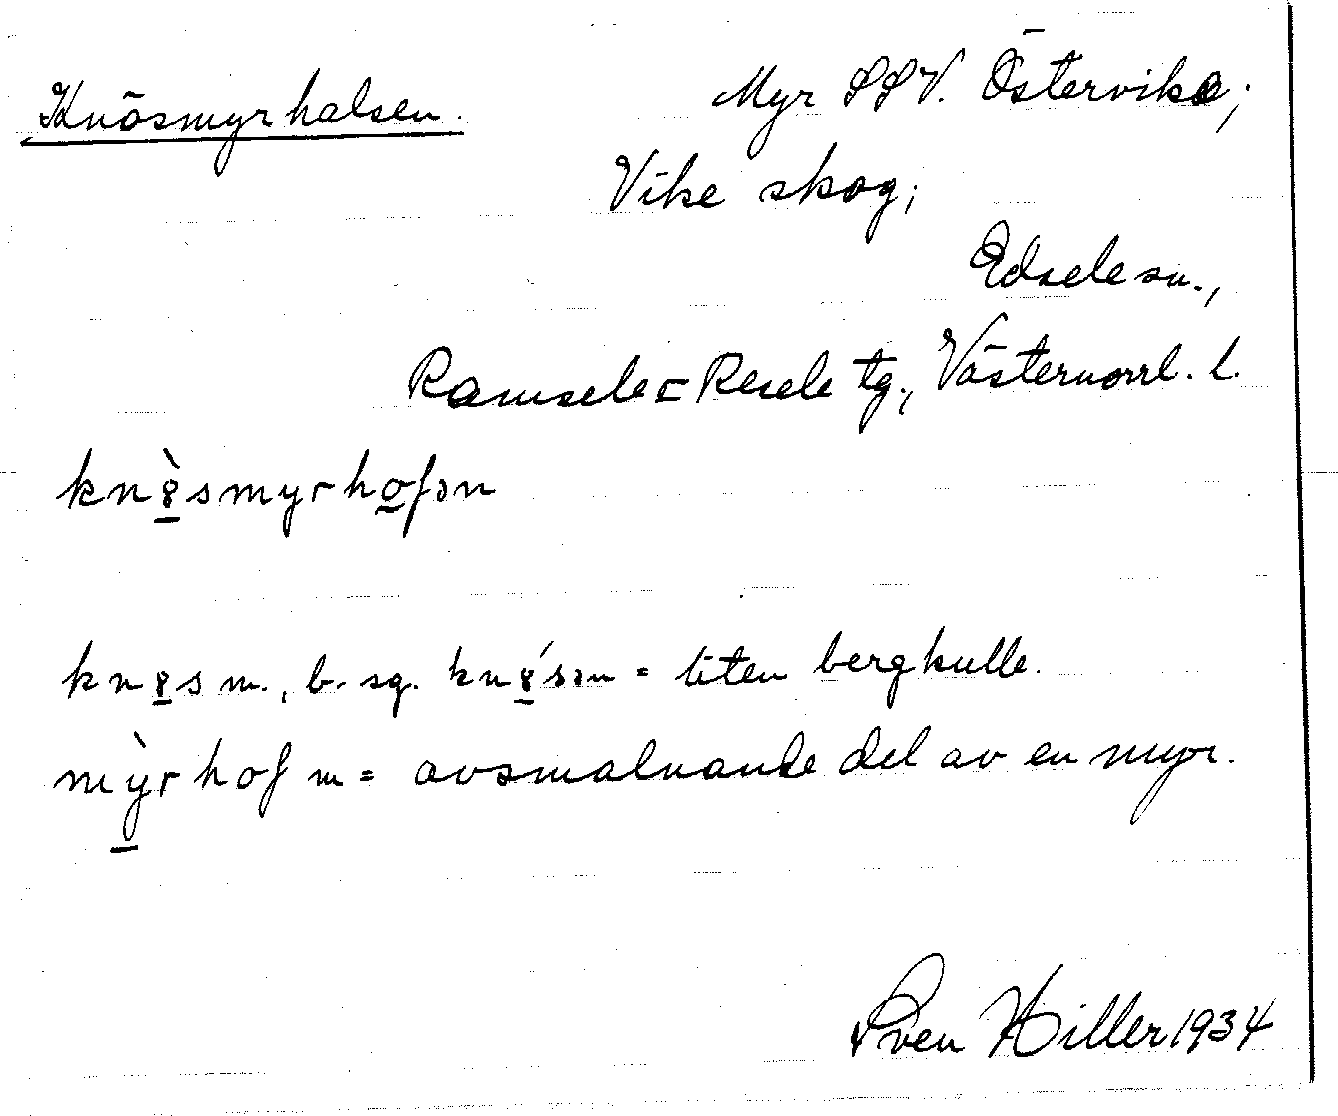 Knösmyrhalsen.
Myr SSV. Östervika;
Vike skog;
Edsele sn.,
Ramsele = Resele tg., Västernorrl. l.
kn8̀smyrhoſən
kn8s m., b. sg. kn8́sən = liten bergkulle.
mỳrhoſ m = avsmalnande del av en myr.
Sven Hiller 1934